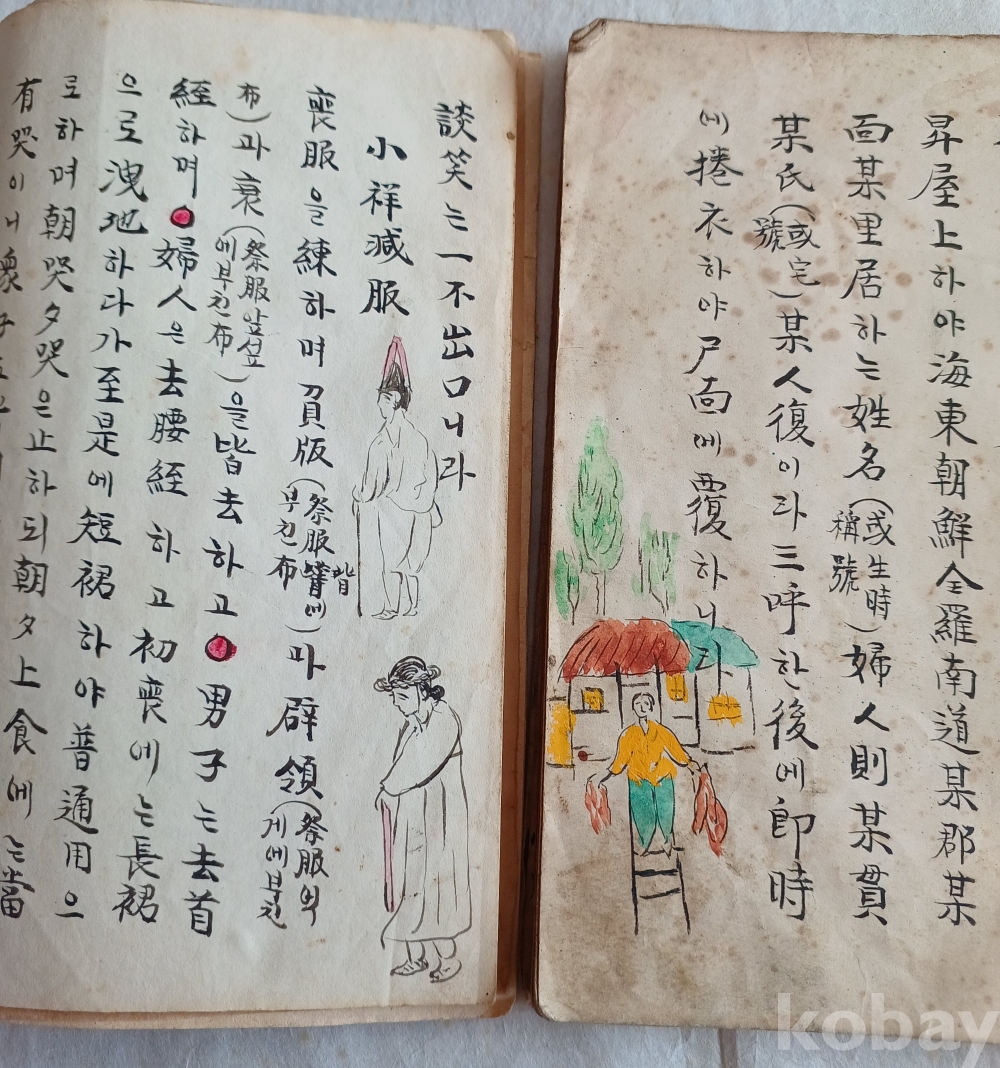 昇屋上하야海東朝鮮全羅南道某郡某
面某里居하는姓名(或生時稱號)婦人則某貫
某氏(或宅號)某人復이라三呼한後에即時
에捲衣하야尸面에覆하니라
談笑는一不出口니라
小祥減服
喪服을練하며負版(祭服에부친布)과辟領(祭服의게에부친
布)과衰(祭服앞섶에부친布)을皆去하고男子는去首
經하며婦人은去腰經하고初喪에는長裙
으로洩地하다가至是에短裙하야普通用으
로하며朝哭夕哭은止하되朝夕上食에는當
有哭이니衆子
kobay